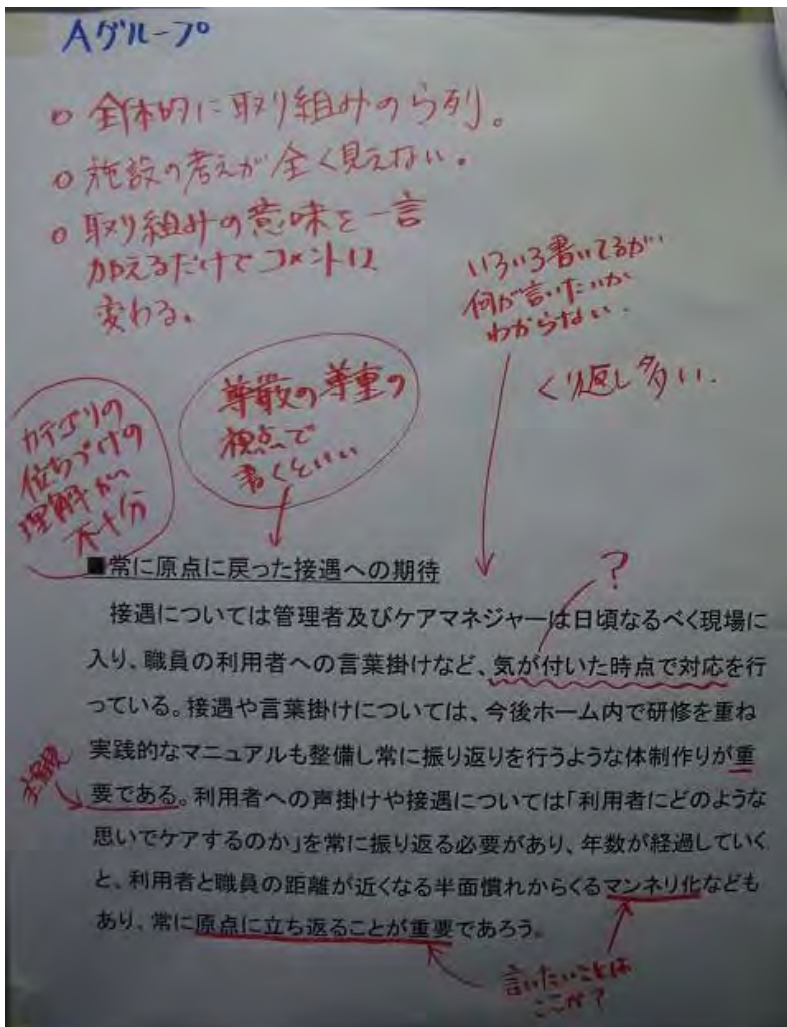 Aグループ
○ 全体的に取り組みのら列。
○ 施設の考えが全く見えない。
○ 取り組みの意味を一言
加えるだけでコメントは
変わる。
いろいろ書いてるが
何が言いたいか
わからない.
くり返し多い.
カテゴリの
位ちづけの
理解が
不十分
尊厳の尊重の
視点で
書くといい
■常に原点に戻った接遇への期待
?
接遇については管理者及びケアマネジャーは日頃なるべく現場に
入り、職員の利用者への言葉掛けなど、気が付いた時点で対応を行
っている。接遇や言葉掛けについては、今後ホーム内で研修を重ね
実践的なマニュアルも整備し常に振り返りを行うような体制作りが重
要である。利用者への声掛けや接遇については「利用者にどのような
思いでケアするのか」を常に振り返る必要があり、年数が経過していく
と、利用者と職員の距離が近くなる半面慣れからくるマンネリ化なども
あり、常に原点に立ち返ることが重要であろう。
言いたいことは
ここか?